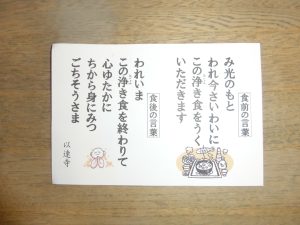 食前の言葉
み光のもと
われ今さいわいに
この浄き食をうく
いただきます
食後の言葉
われいま
この浄き食を終わりて
心ゆたかに
ちから身にみつ
ごちそうさま
以速寺